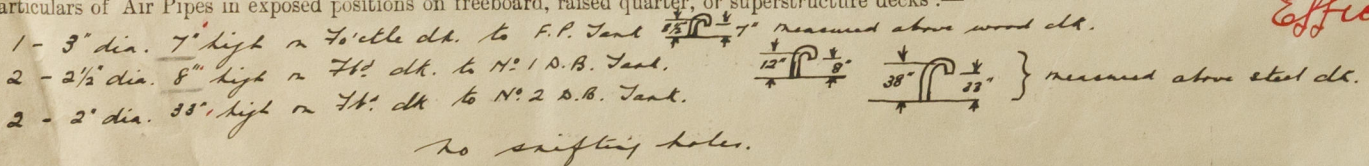 articulars of Air Pipes in exposed positions on freeboard, raised quarter, or superstructure decks :—
Effic
1 - 3" dia. 7" high on Fo'ctle dk. to F.P. Tank 8½" 7" measured above wood dk.
2 - 2½" dia. 8" high on Fbd. dk. to No 1 D.B. Tank. 12" 8"
2 - 2" dia. 33" high on Fbd. dk to No. 2 D.B. Tank. 38" 33" } measured above steel dk.
No snifting holes.